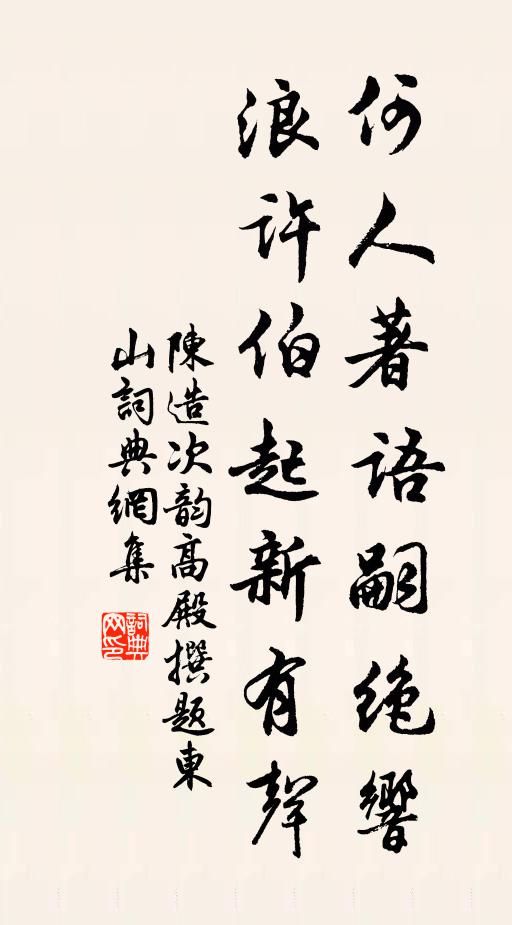 何人著語嗣絶響
浪許伯起新有聲
陳造次韵高殿撰題東
山詞典網集
詞典网印